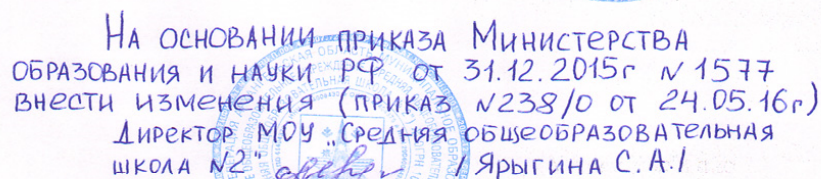 На основании приказа Министерства
образования и науки РФ от 31.12.2015г N 1577
внести изменения (приказ N238/о от 24.05.16г)
Директор МОУ „Средняя общеобразовательная
школа N2" / Ярыгина С.А./